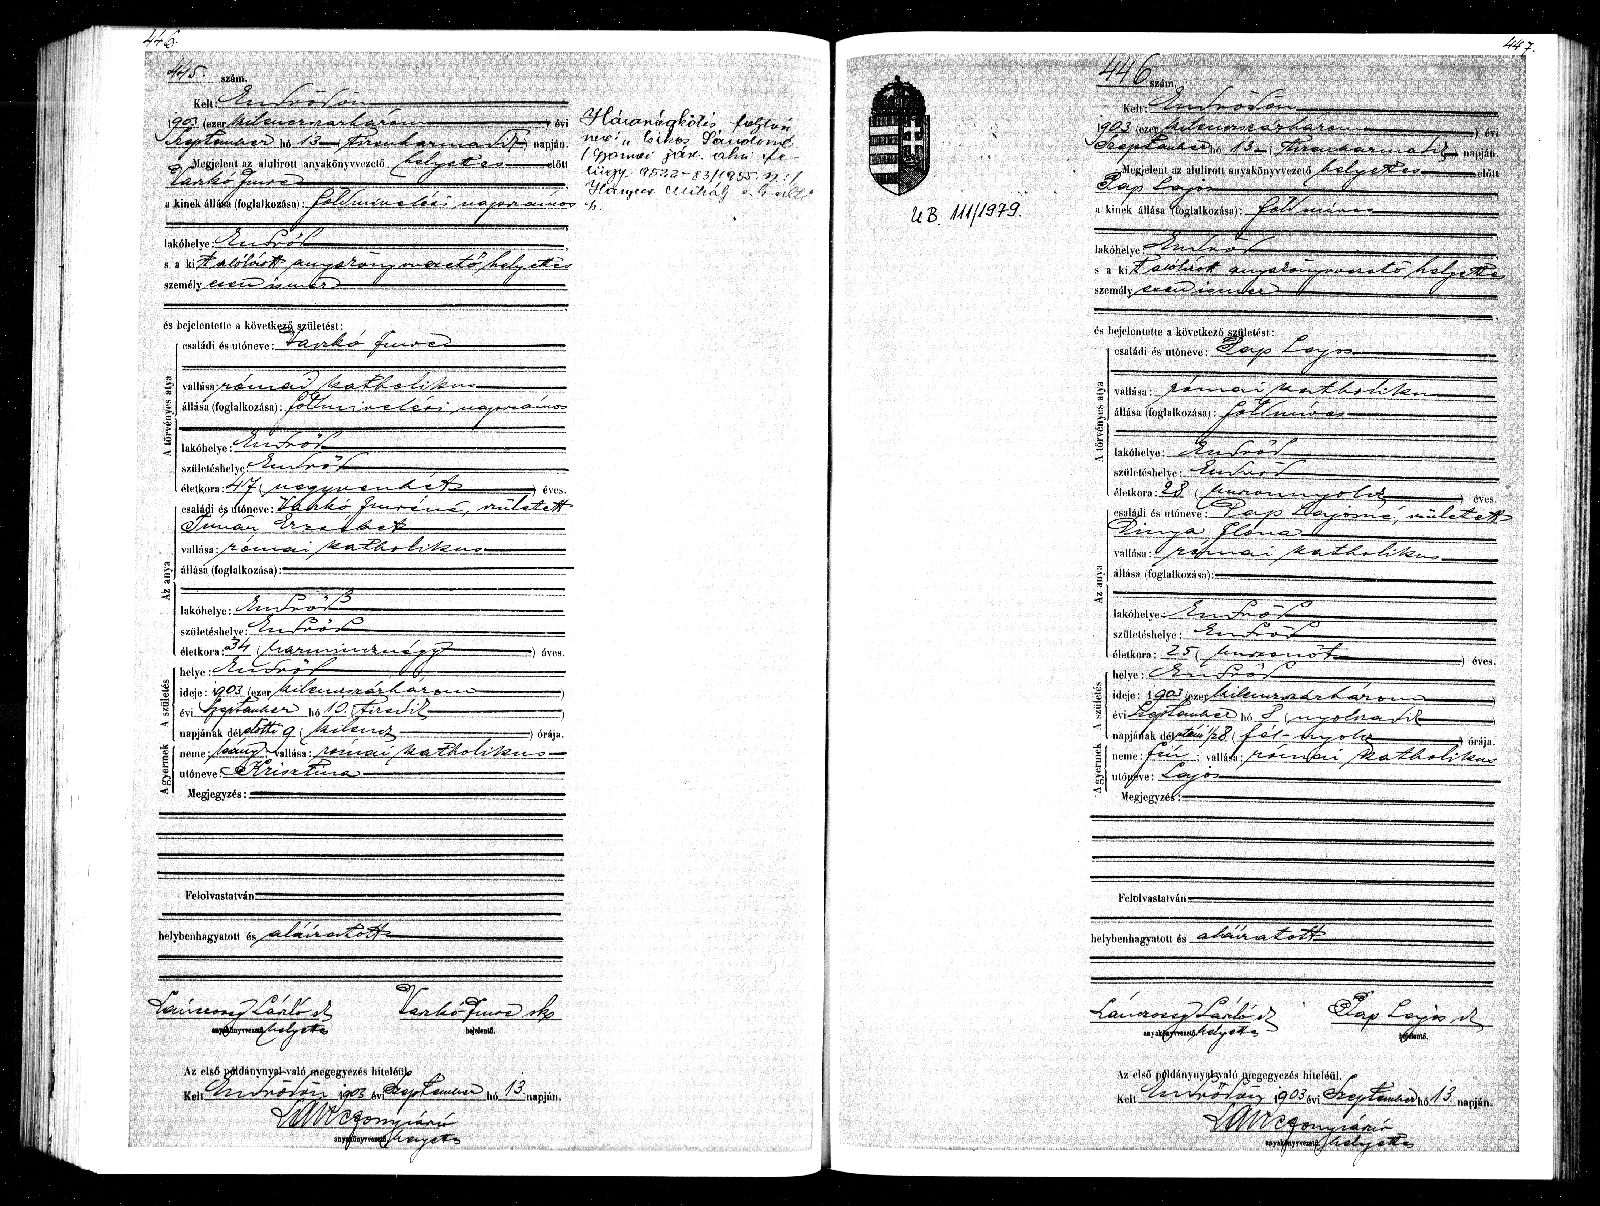 446.
445. szám.
Kelt: Endrődön
1903 (ezer kilenczszázhárom) évi
Szeptember hó 13 (tizenharmadik) napján.
Megjelent az alulirott anyakönyvvezető helyettes előtt
Varkó Imre
a kinek állása (foglalkozása): földmivelési napszámos
lakóhelye: Endrőd
s a kit alólírott anyakönyvvezető helyettes
személyesen ismer
és bejelentette a következő születést:
A törvényes atya
családi és utóneve: Varkó Imre
vallása: római katholikus
állása (foglalkozása): földmivelési napszámos
lakóhelye: Endrőd
születéshelye: Endrőd
életkora: 47 (negyvenhét) éves.
Az anya
családi és utóneve: Varkó Imréné, született
Timár Erzsébet
vallása: római katholikus
állása (foglalkozása):
lakóhelye: Endrőd
születéshelye: Endrőd
életkora: 34 (harmincznégy) éves.
A születés
helye: Endrőd
ideje: 1903 (ezer kilenczszázhárom)
évi Szeptember hó 10. (tizedik)
napjának dél előtti 9 (kilencz) órája.
A gyermek
neme: leány vallása: római katholikus
utóneve: Krisztina
Megjegyzés:
Felolvastatván
helybenhagyatott és aláiratott
László
anyakönyvvezető helyettes
Varkó Imre sk
bejelentő.
Az első példánynyal való megegyezés hiteléül.
Kelt Endrődön 1903 évi Szeptember hó 13. napján.
anyakönyvvezető helyettes
Házasságkötés folytán
Sándorné
9522-83/1955
Mihály
447.
446 szám.
Kelt: Endrődön
1903 (ezer kilenczszázhárom) évi
Szeptember hó 13 (tizenharmadik) napján.
Megjelent az alulirott anyakönyvvezető helyettes előtt
Pap Lajos
a kinek állása (foglalkozása): földmives
lakóhelye: Endrőd
s a kit alólírott anyakönyvvezető helyettes
személyesen ismer
és bejelentette a következő születést:
A törvényes atya
családi és utóneve: Pap Lajos
vallása: római katholikus
állása (foglalkozása): földmives
lakóhelye: Endrőd
születéshelye: Endrőd
életkora: 28 (huszonnyolcz) éves.
Az anya
családi és utóneve: Pap Lajosné, született
Dinya Ilona
vallása: római katholikus
állása (foglalkozása):
lakóhelye: Endrőd
születéshelye: Endrőd
életkora: 25 (huszonöt) éves.
A születés
helye: Endrőd
ideje: 1903 (ezer kilenczszázhárom)
évi Szeptember hó 8 (nyolczadik)
napjának dél utáni ½8 (fél nyolcz) órája.
A gyermek
neme: fiú vallása: római katholikus
utóneve: Lajos
Megjegyzés:
Felolvastatván
helybenhagyatott és aláiratott
László
anyakönyvvezető helyettes
Pap Lajos
bejelentő.
Az első példánynyal való megegyezés hiteléül.
Kelt Endrődön 1903 évi Szeptember hó 13. napján.
anyakönyvvezető helyettes
UB. 111/1979.